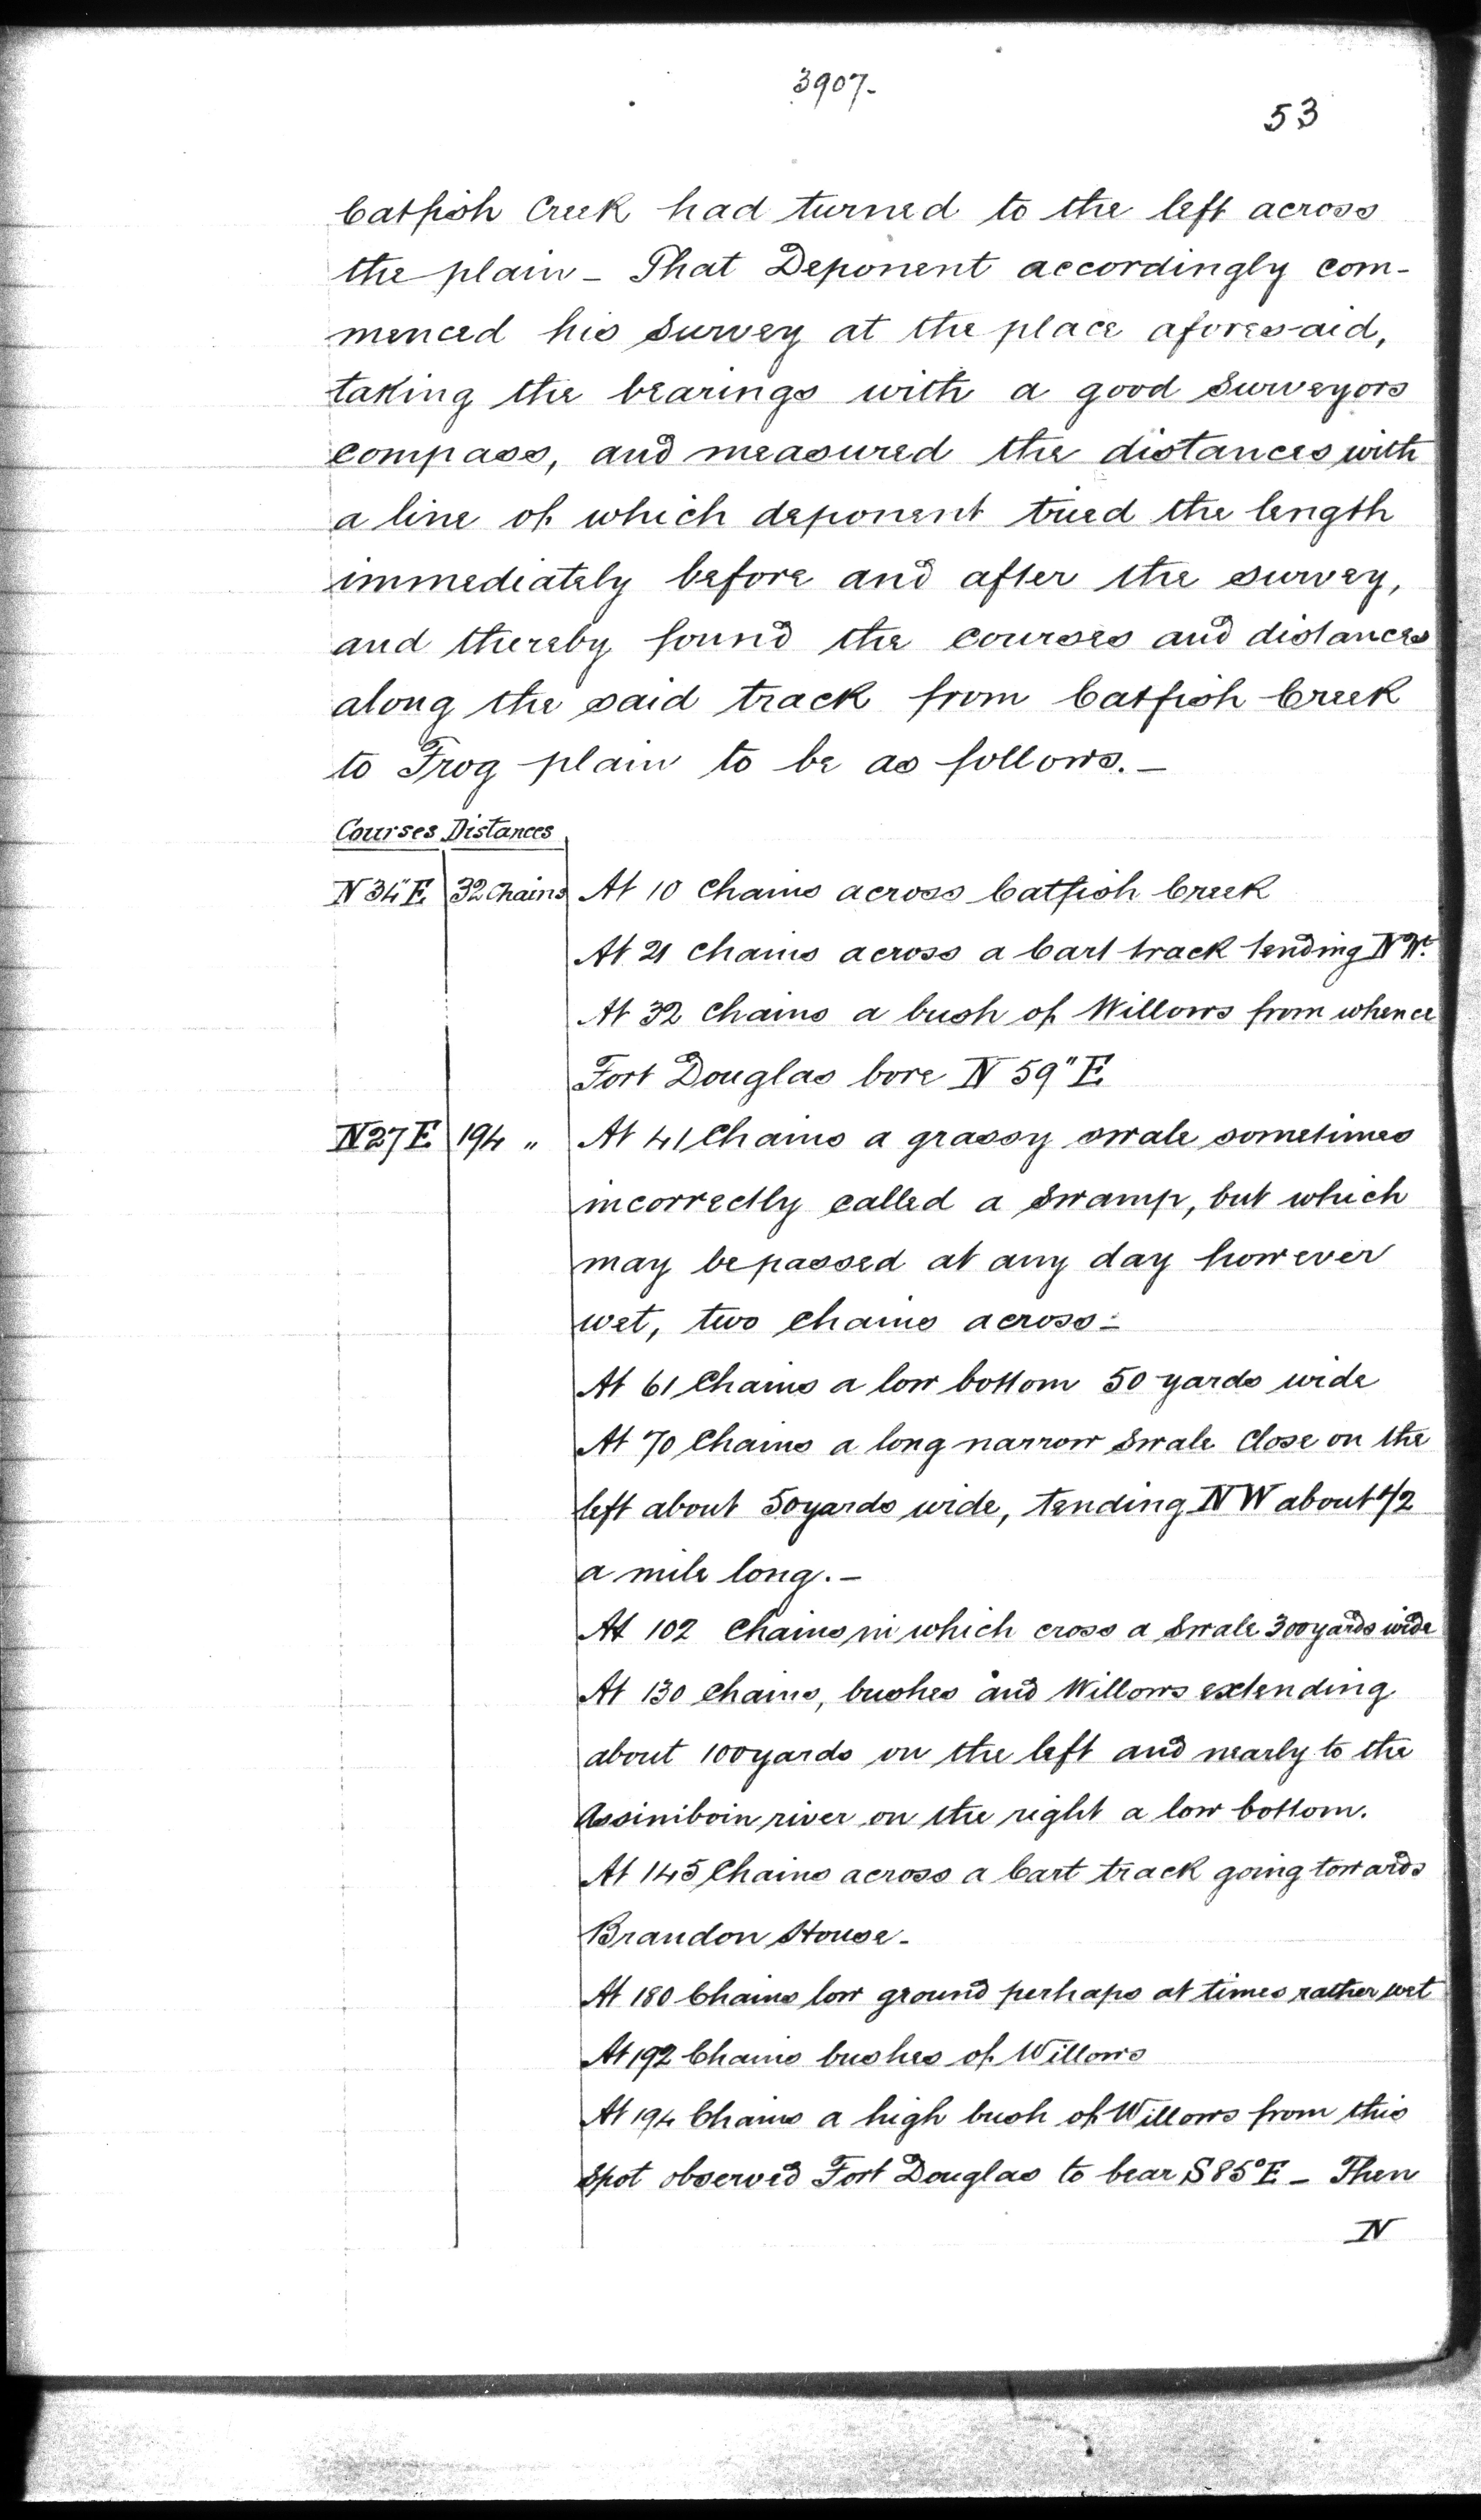 3907-
53
Catfish Creek had turned to the left across
the plain - That Deponent accordingly com-
menced his Survey at the place aforesaid,
taking the bearings with a good Surveyors
compass, and measured the distances with
a line of which deponent tried the length
immediately before and after the survey,
and thereby found the courses and distances
along the said track from Catfish Creek
to Frog plain to be as follows. -
Courses Distances
N 34" E 32 Chains At 10 Chains across Catfish Creek
At 21 Chains across a Cart track tending NW.
At 32 Chains a bush of Willows from whence
Fort Douglas bore N 59" E
N 27 E 194 " At 41 Chains a grassy swale sometimes
incorrectly called a Swamp, but which
may be passed at any day however
wet, two Chains across -
At 61 Chains a low bottom 50 yards wide
At 70 Chains a long narrow Swale Close on the
left about 50 yards wide, tending NW about 1/2
a mile long. -
At 102 Chains in which cross a Swale 300 yards wide
At 130 Chains, bushes and Willows extending
about 100 yards on the left and nearly to the
Assiniboin river on the right a low bottom.
At 145 Chains across a Cart track going towards
Brandon House -
At 180 Chains low ground perhaps at times rather wet
At 192 Chains bushes of Willows
At 194 Chains a high bush of Willows from this
Spot observed Fort Douglas to bear S 85° E - Then
N